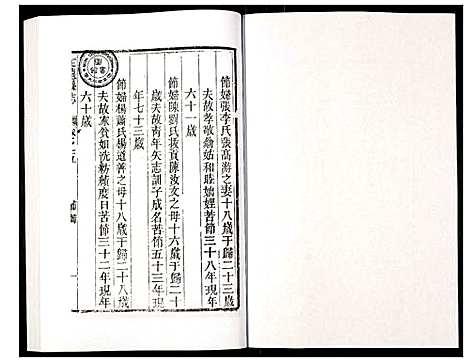 節婦張李氏張高游之妻十八歲于歸二十三歲
夫故孝敬翁姑和睦妯娌苦節三十八年現年
六十一歲
節婦陳劉氏拔貢陳汝文之母十六歲于歸二十
歲夫故青年矢志訓子成名苦節五十三年現
年七十三歲
節婦楊蕭氏楊道善之母十八歲于歸二十八歲
夫故家貧如洗紡績度日苦節三十二年現年
六十歲